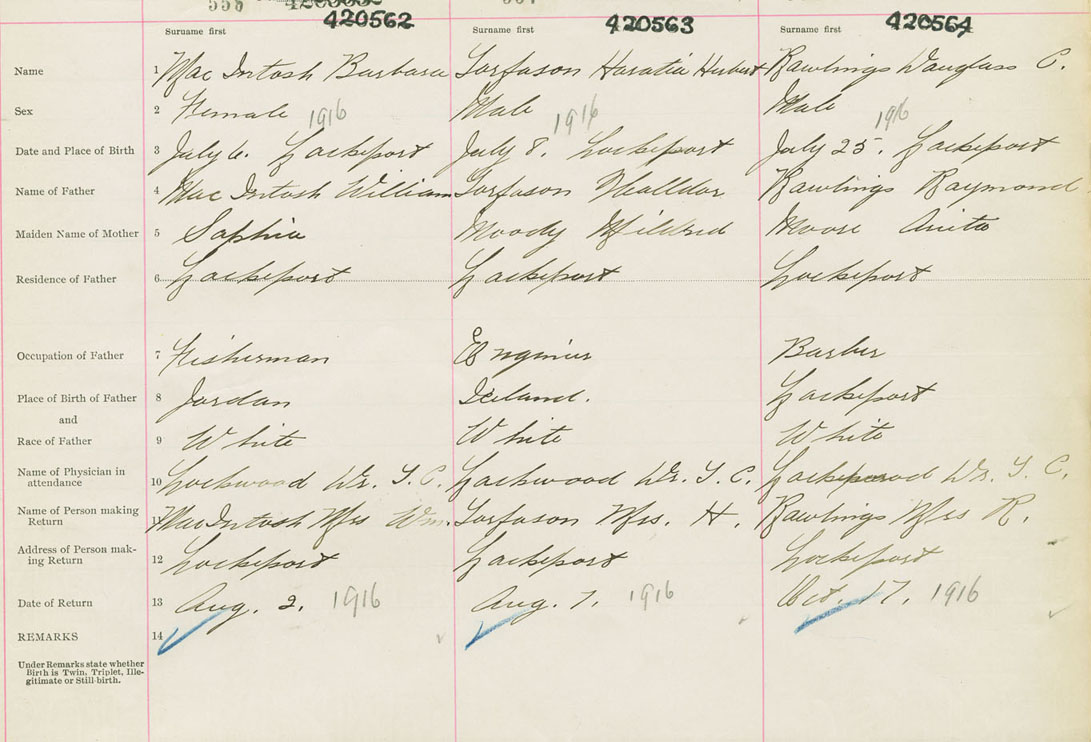 558
420562 420563 420564
Surname first Surname first Surname first
Name 1 Mac Intosh Barbara Torfason Horatio Herbert Rawlings Douglass C.
Sex 2 Female 1916 Male 1916 Male 1916
Date and Place of Birth 3 July 6. Lockeport July 8. Lockeport July 25. Lockeport
Name of Father 4 Mac Intosh William Torfason Halldor Rawlings Raymond
Maiden Name of Mother 5 Sophia Moody Mildred Moore Anita
Residence of Father 6 Lockeport Lockeport Lockeport
Occupation of Father 7 Fisherman Engineer Barber
Place of Birth of Father 8 Jordan Iceland. Lockeport
and
Race of Father 9 White White White
Name of Physician in
attendance 10 Lockwood Dr. T. C. Lockwood Dr. T. C. Lockwood Dr. T. C.
Name of Person making
Return 11 MacIntosh Mrs Wm. Torfason Mrs. H. Rawlings Mrs R.
Address of Person mak-
ing Return 12 Lockeport Lockeport Lockeport
Date of Return 13 Aug. 2. 1916 Aug. 7. 1916 Oct. 17. 1916
REMARKS 14
Under Remarks state whether
Birth is Twin, Triplet, Ille-
gitimate or Still-birth.